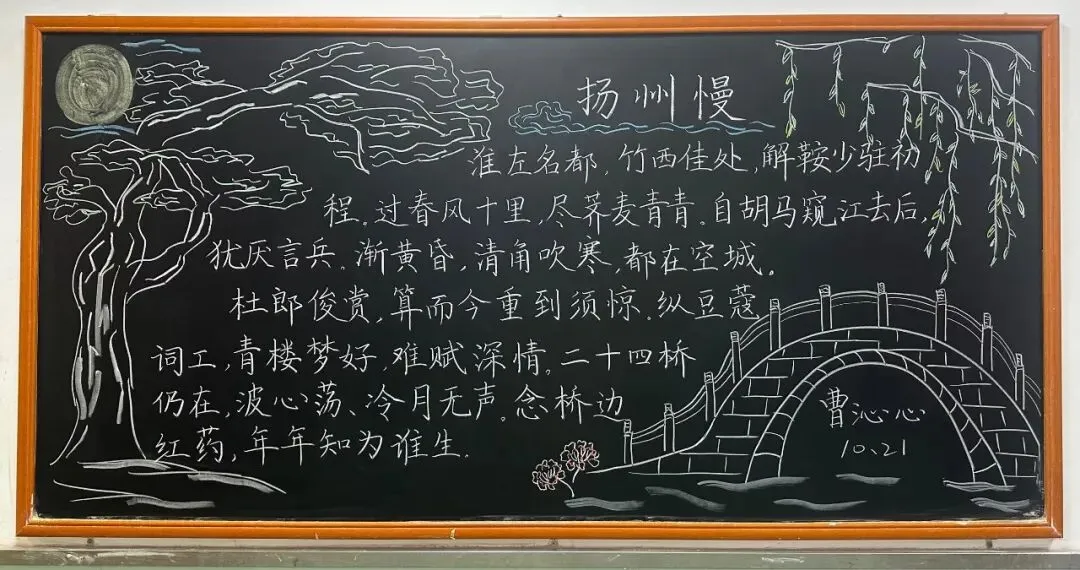 扬州慢
淮左名都,竹西佳处,解鞍少驻初
程。过春风十里,尽荠麦青青。自胡马窥江去后,
犹厌言兵。渐黄昏,清角吹寒,都在空城。
杜郎俊赏,算而今重到须惊。纵豆蔻
词工,青楼梦好,难赋深情。二十四桥
仍在,波心荡、冷月无声。念桥边
红药,年年知为谁生.
曹沁心
10.21